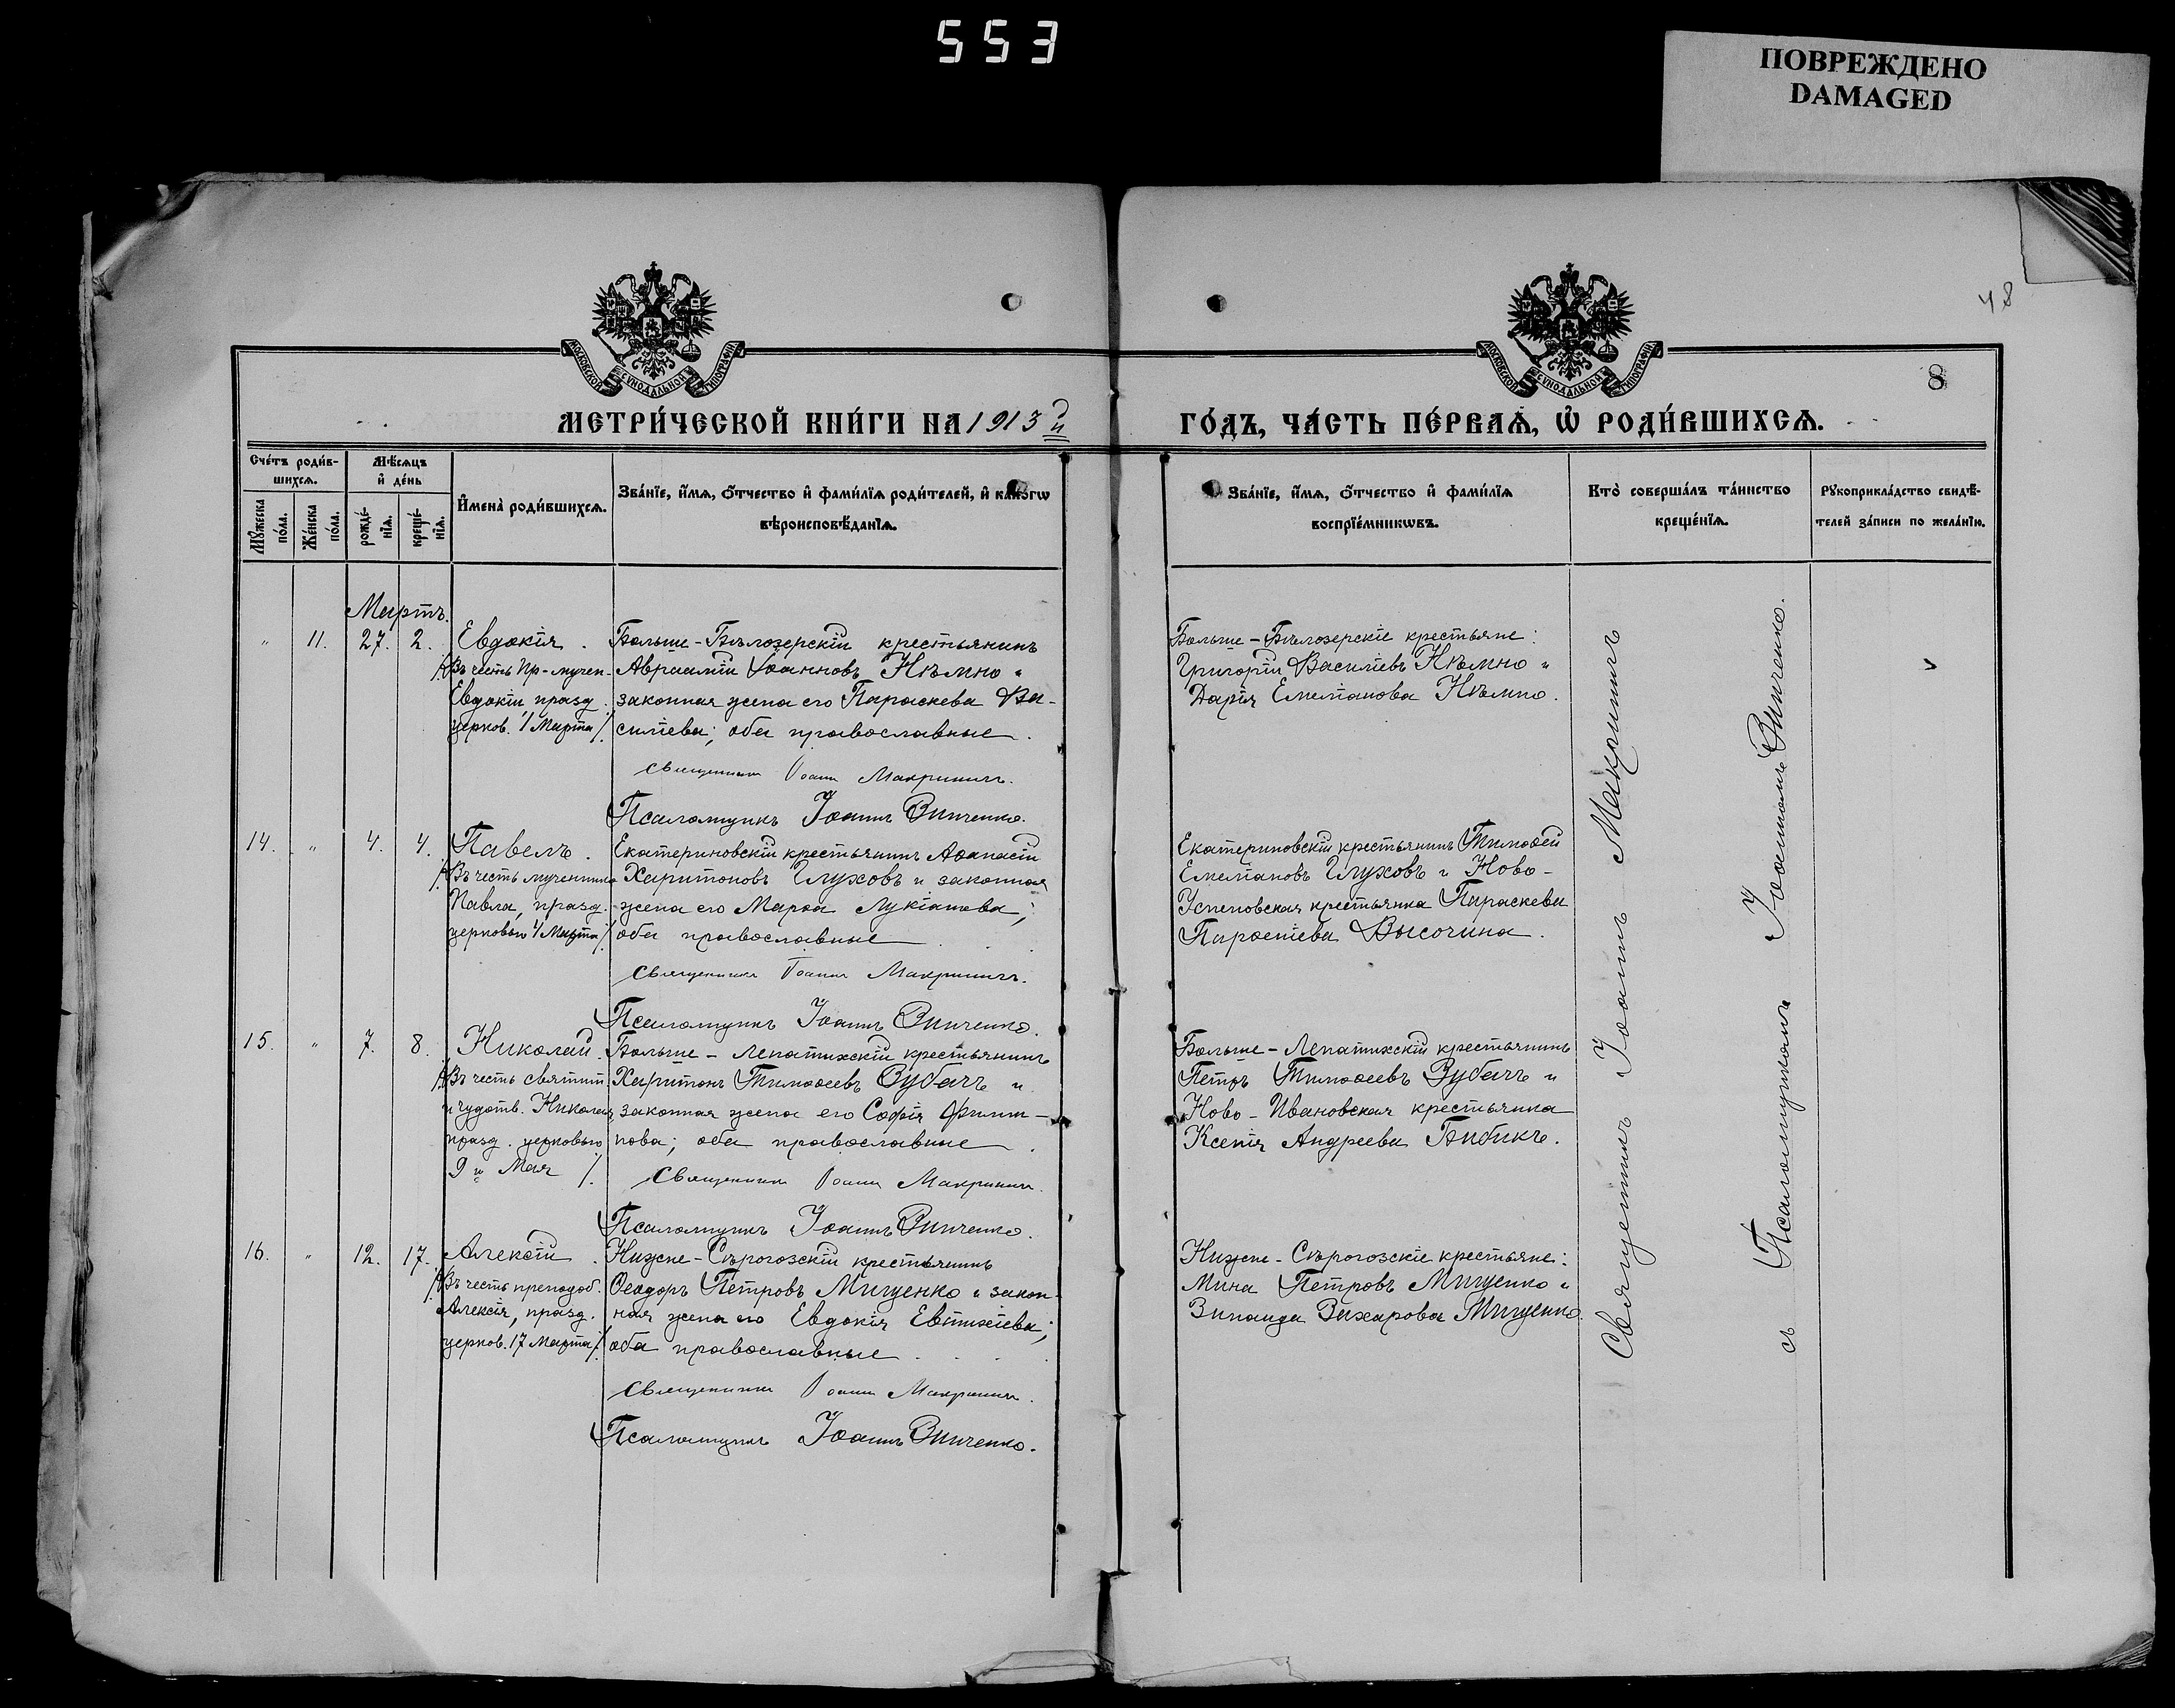 553
ПОВРЕЖДЕНО
DAMAGED
48
8
МОСКОВСКОЙ СѴНОДАЛЬНОЙ ТИПОГРАФІИ
МОСКОВСКОЙ СѴНОДАЛЬНОЙ ТИПОГРАФІИ
МЕТРИ́ЧЕСКОЙ КНИ́ГИ НА 1913й
ГО́ДЪ, ЧА́СТЬ ПЕ́РВАѦ, Ѿ РОДИ́ВШИХСѦ.
Сче́тъ роди́в-
шихсѧ.
Мꙋ́жеска по́ла.
Же́нска по́ла.
Мѣ́сѧцъ
и҆ де́нь
рожде́-
нїѧ.
креще́-
нїѧ.
И҆мена̀ роди́вшихсѧ.
Зва́нїе, и҆́мѧ, ѻ҆́тчество и҆ фами́лїѧ роди́телей, и҆ како́гѡ
вѣроисповѣ́данїѧ.
Зва́нїе, и҆́мѧ, ѻ҆́тчество и҆ фами́лїѧ
воспрїе́мникѡвъ.
Кто̀ соверша́лъ та́инство
креще́нїѧ.
Рꙋкоприкла́дство свидѣ́-
телей за́писи по жела́нїю.
Мартъ.
" 11. 27. 2. Евдокія.
/Въ честь Пр-мучен.
Евдокіи празд.
церков. 1 Марта/.
Больше-Бѣлозерскій крестьянинъ
Авраамій Іоанновъ Нѣмно и
законная жена его Параскева Ва-
силіева; оба православные.
Священникъ Іоаннъ Макриничъ.
Псаломщикъ Іоаннъ Зинченко.
Больше-Бѣлозерскіе крестьяне:
Григорій Василіевъ Нѣмно и
Дарія Емеліанова Нѣмно.
14. " 4. 4. Павелъ.
/Въ честь мученика
Павла, празд.
церковью 4 Марта/.
Екатериновскій крестьянинъ Аѳанасій
Харитоновъ Глуховъ и законная
жена его Марѳа Лукіанова;
оба православные
Священникъ Іоаннъ Макриничъ.
Псаломщикъ Іоаннъ Зинченко.
Екатериновскій крестьянинъ Тимоѳей
Емеліановъ Глуховъ и Ново-
Успеновская крестьянка Параскева
Высочина.
15. " 7. 8. Николай.
/Въ честь святит.
и чудотв. Николая,
празд. церковью
9й Мая/.
Больше-Лепатихскій крестьянинъ
Харитонъ Тимоѳеевъ Зубачъ и
законная жена его Софія Филип-
пова; оба православные.
Священникъ Іоаннъ Макриничъ.
Псаломщикъ Іоаннъ Зинченко.
Больше-Лепатихскій крестьянинъ
Петръ Тимоѳеевъ Зубачъ и
Ново-Ивановская крестьянка
Ксенія Андреева Бибикъ.
16. " 12. 17. Алексій.
/Въ честь преподоб.
Алексія, празд.
церков. 17 Марта/.
Нижне-Сѣрогозскій крестьянинъ
Ѳеодоръ Петровъ Мищенко и закон-
ная жена его Евдокія Евтихіева;
оба православные
Священникъ Іоаннъ Макриничъ.
Псаломщикъ Іоаннъ Зинченко.
Нижне-Сѣрогозскіе крестьяне:
Мина Петровъ Мищенко и
Зинаида Захарова Мищенко.
Священникъ Іоаннъ Макриничъ
съ Псаломщикомъ Іоанномъ Зинченко.